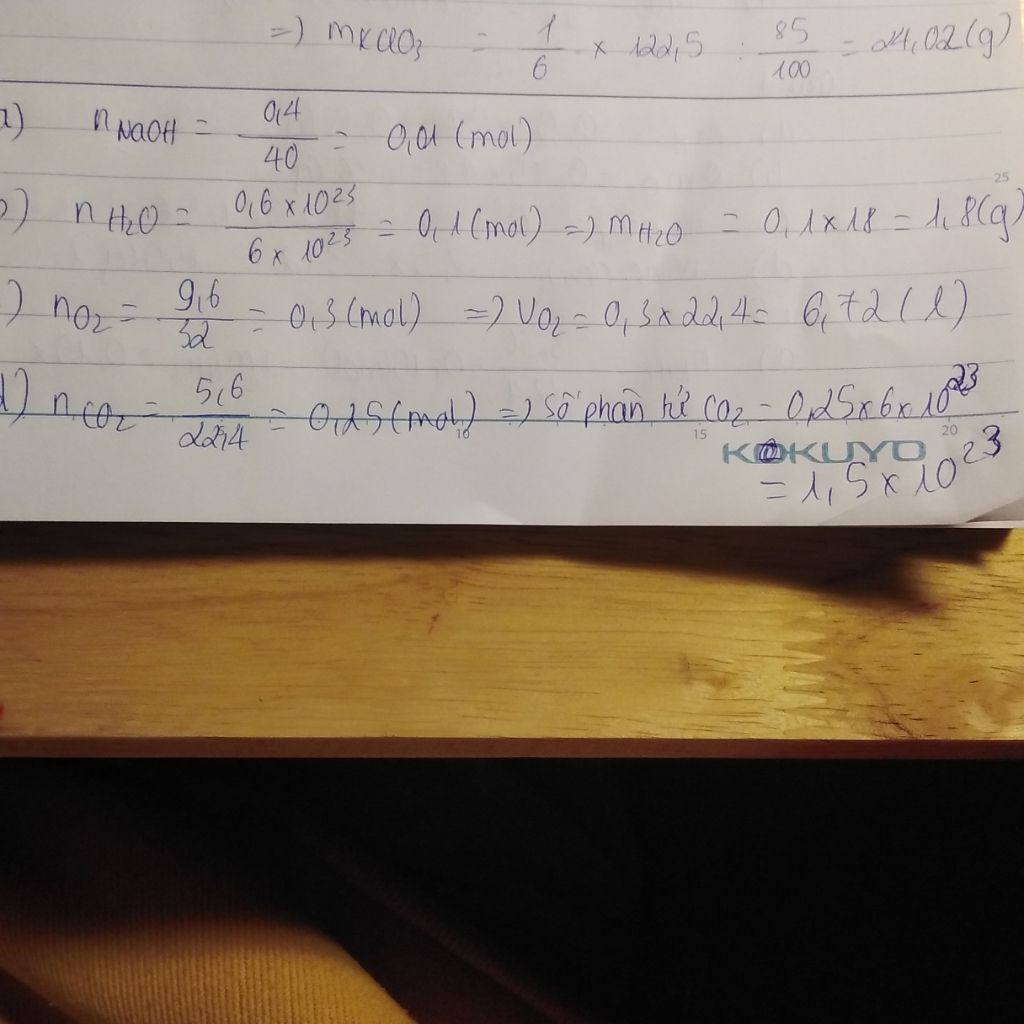 => mKClO3 = 1/6 × 122,5 : 85/100 = 24,02 (g)
a) nNaOH = 0,4/40 = 0,01 (mol)
25
b) nH2O = 0,6 × 10^23/6 × 10^23 = 0,1 (mol) => mH2O = 0,1 × 18 = 1,8 (g)
c) nO2 = 9,6/32 = 0,3 (mol) => VO2 = 0,3 × 22,4 = 6,72 (l)
d) nCO2 = 5,6/22,4 = 0,25 (mol) => Số phân tử CO2 = 0,25 × 6 × 10^23
10 15 20
KOKUYO
= 1,5 × 10^23